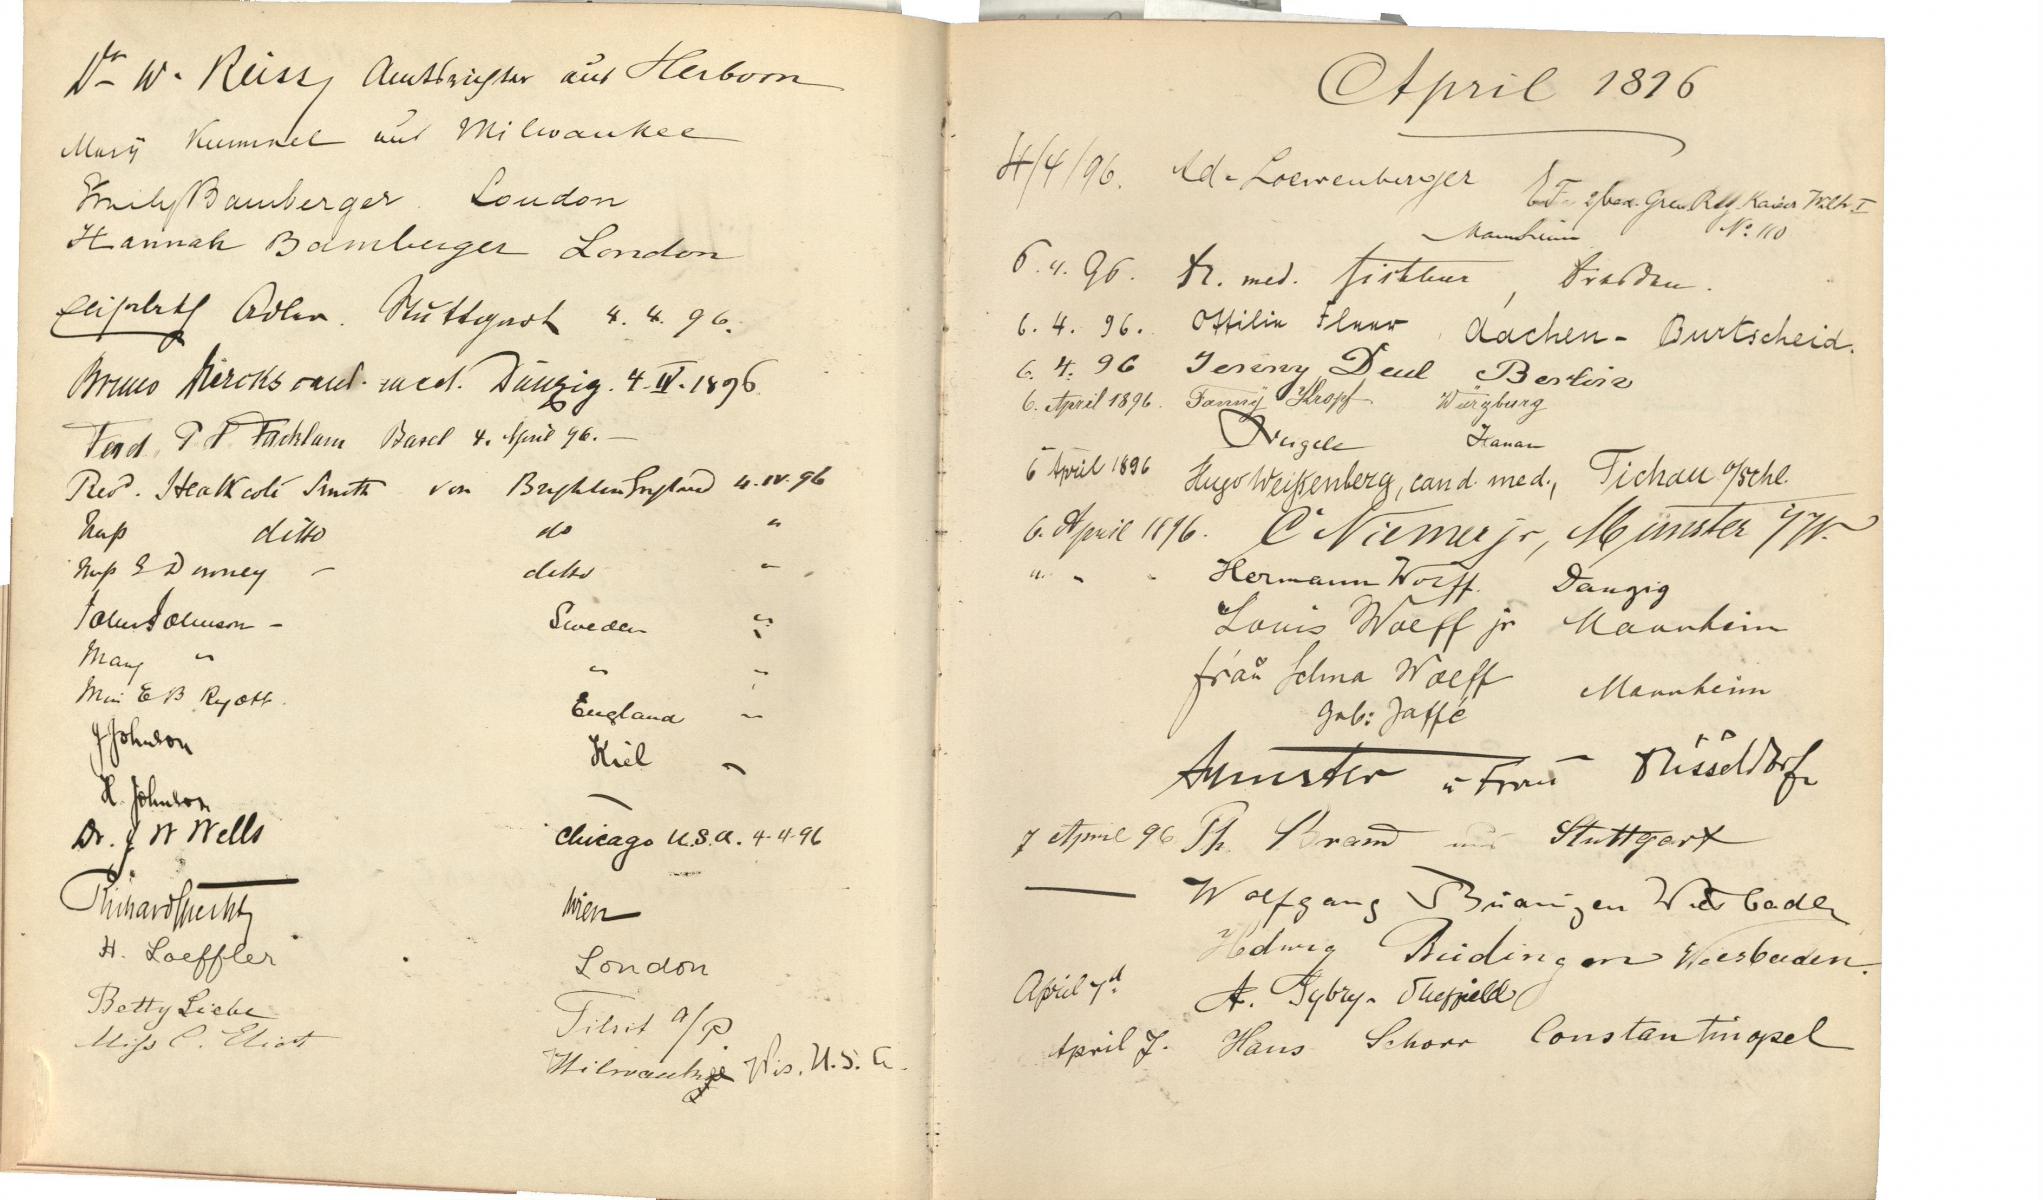 Dr W. Reiss Amtsrichter aus Herborn
Mary Kummel aus Milwaukee
Emily Bamberger London
Hannah Bamberger London
Elisabeth Adler. Stuttgart 4. 4. 96.
Bruno Miercks cand. med. Danzig. 4. IV. 1896
Ferd. Facklam Basel 4. April 96. —
Revd. Heathcote Smith von Brighton England 4. IV. 96
ditto do "
Downey – ditto "
John Johnson – Sweden "
Mary " " "
Miss E B Ryott. England "
J Johnson Kiel "
H. Johnson —
Dr. J W Wells Chicago U.S.A. 4-4-96
Richard Specht Wien
H. Loeffler London
Betty Liebe Tilsit a/P.
Miss C. Eliot Milwaukee Wis. U.S.A.
April 1896
4/4/96. Ad. Loewenberger
Kaiser Wilh. I
Mannheim No 110
6. 4. 96. Dr. med. Dresden.
6. 4. 96. Ottilie Aachen - Burtscheid.
6. 4. 96 Jeremy Deul Berlin
6. April 1896. Fanny Kropf Würzburg
Nugele Hanau
6 April 1896 Hugo Weißenberg, cand. med., Tichau o/schl.
6. April 1896. C Niemer jr, Münster i/W.
" " " Hermann Wolff. Danzig
Louis Woeff jr Mannheim
Frau Selma Woeff Mannheim
geb: Jaffé
u Frau Düsseldorf
7 April 96 Th. Brand aus Stuttgart
— Wolfgang Büdingen Wiesbaden
Hedwig Büdingen Wiesbaden.
April 7d A. Sheffield
April 7. Hans Schorr Constantinopel